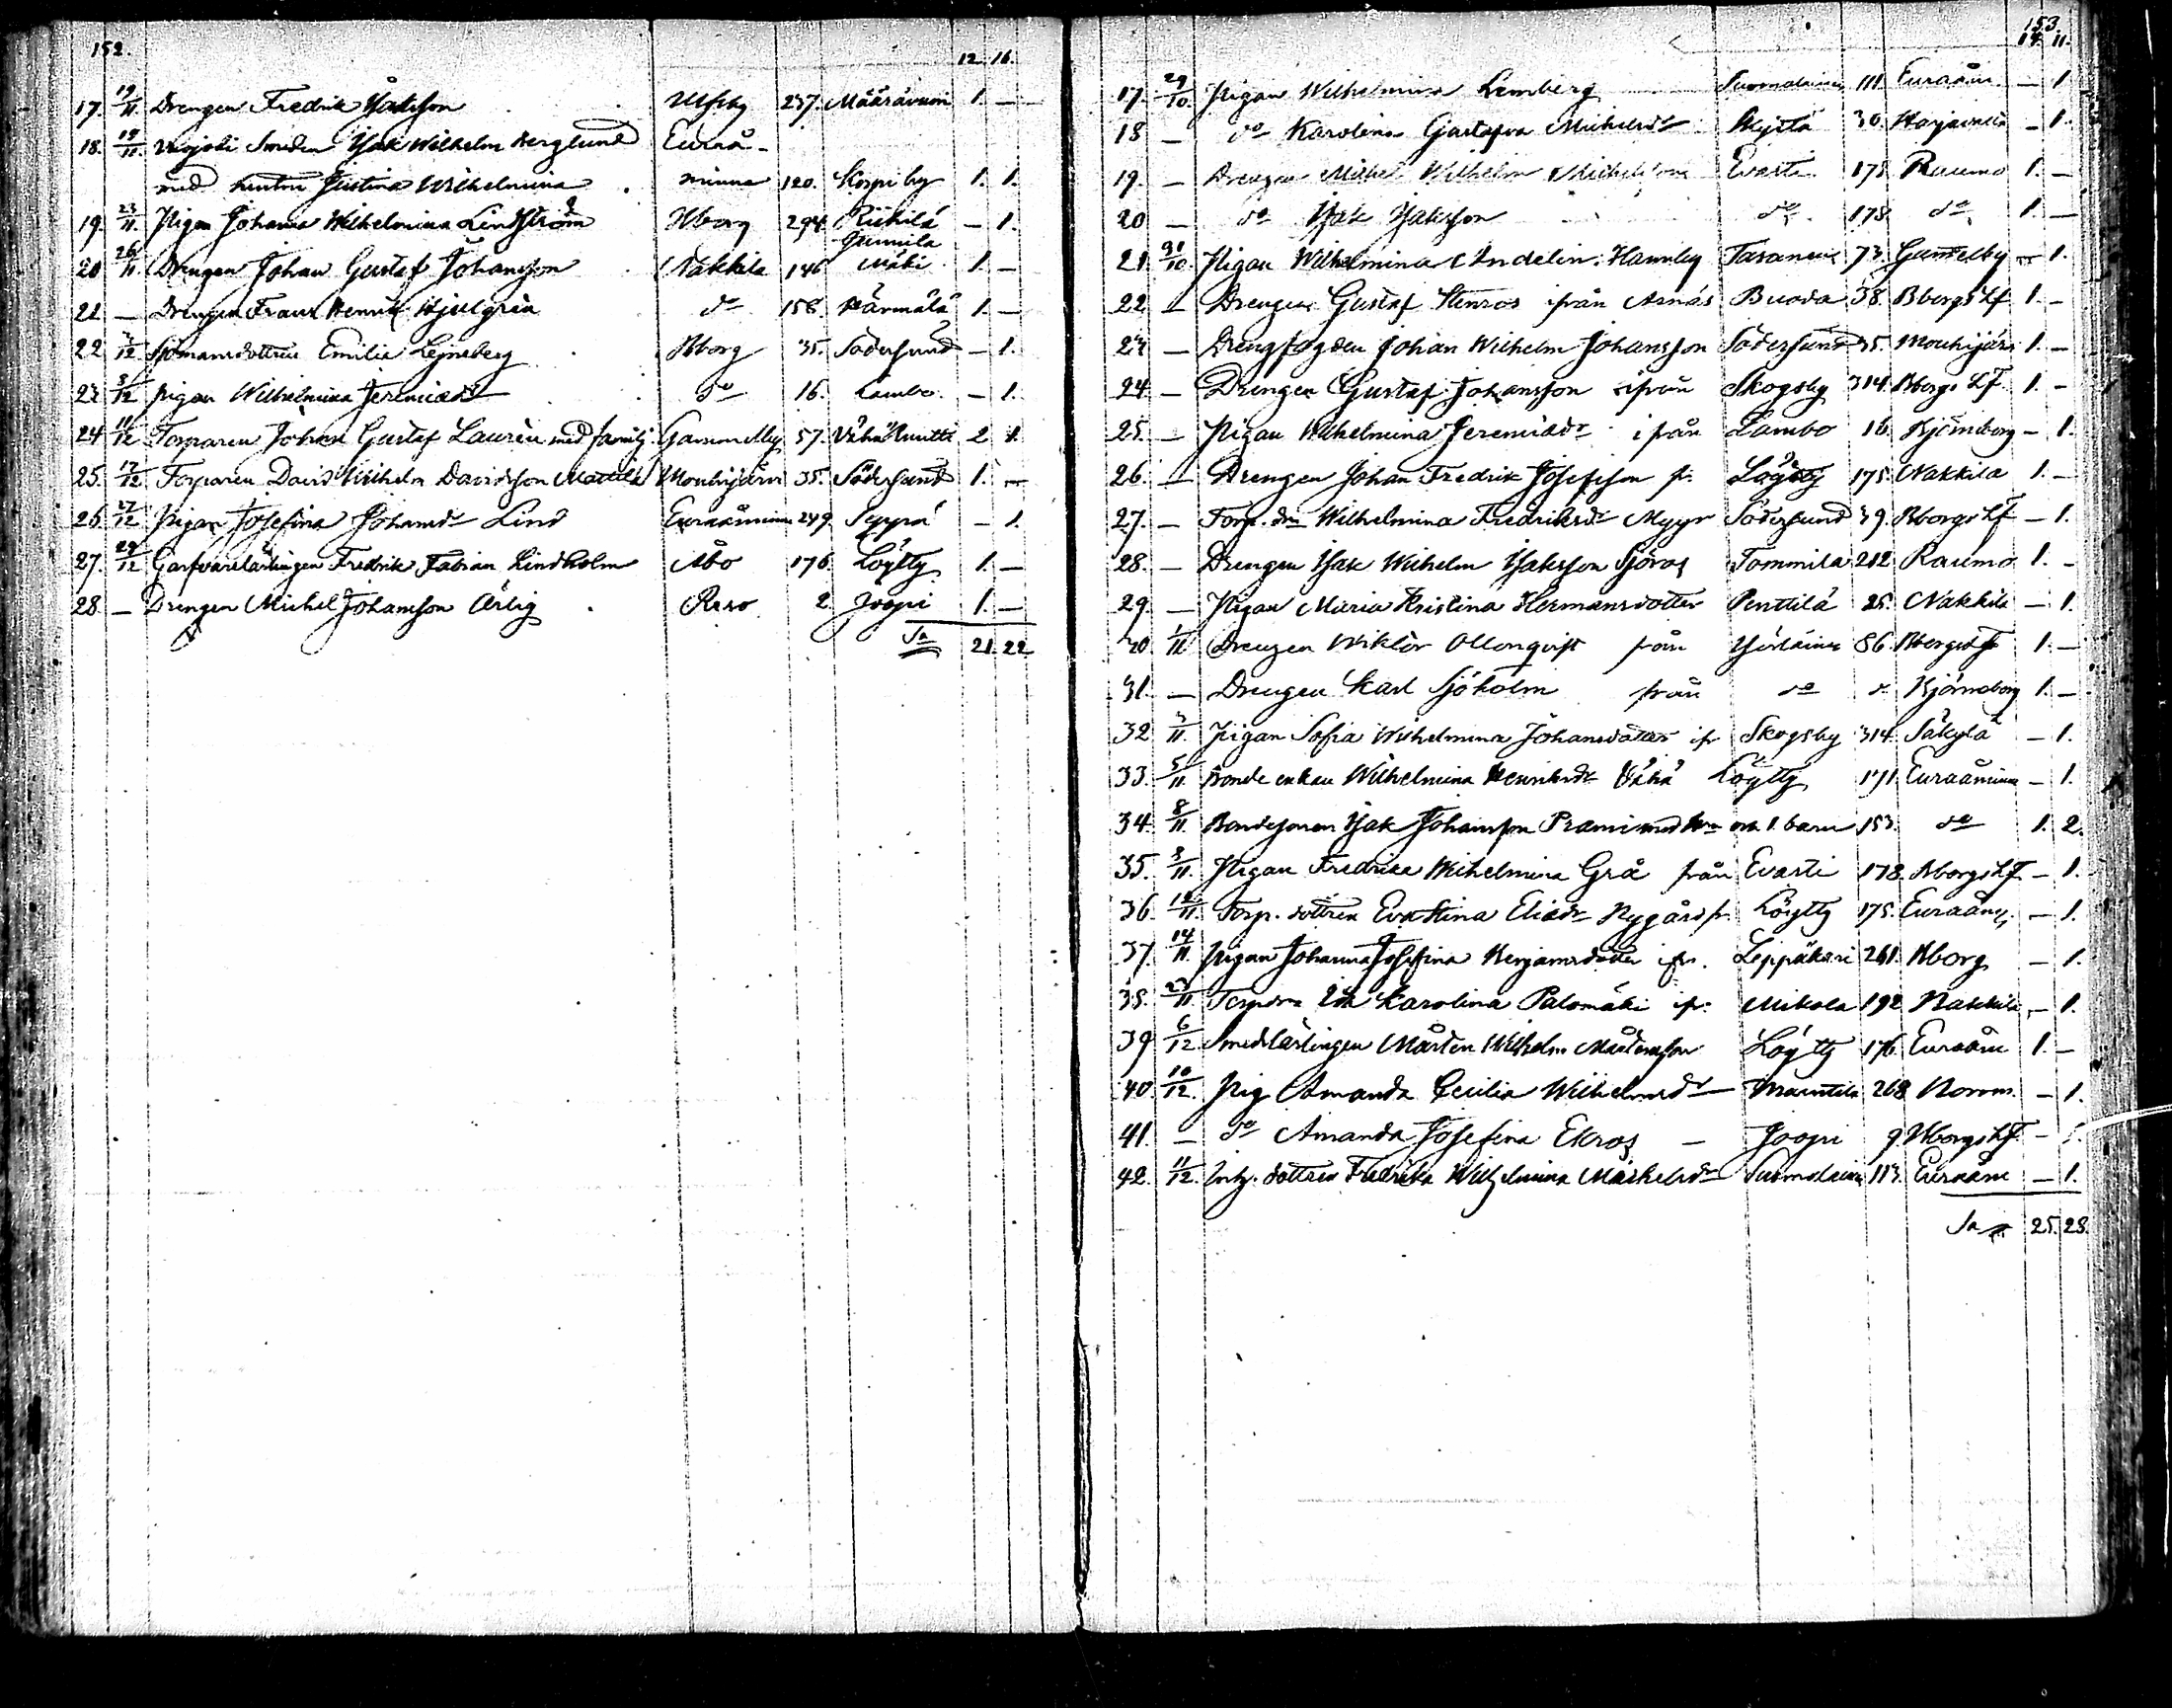 152.
12. 16.
17. 19/11 Drengen Fredrik Isaksson Ulfsby 237. Määrävuori 1. —
18. 19/11. Smeden Isak Wilhelm Berglund Eura å-
med hustru Justina Wilhelmina minne 120. Korpi by 1. 1.
19. 23/11. Pigan Johanna Wilhelmina Lindström Bborg 294. Riikilä — 1.
Gunnila
20 26/11 Drengen Johan Gustaf Johansson Nakkila 146 Mäki 1. —
21 — Drengen Frans Henrik Hjulgrén do 156. Härmälä 1. —
22 3/12 Sjömansdottren Emilia Lejneberg Bborg 35. Södersund — 1.
23 8/12 Pigan Wilhelmina Jeremiasdr do 16. Lambo — 1.
24 11/12 Torparen Johan Gustaf Laurén med familj. Gammelby 57. Vähä Knutti 2 1.
25. 17/12 Torparen David Wilhelm Davidsson Mattila Mouhijärvi 35. Södersund 1. —
26. 27/12 Pigan Josefina Johansdr Lind Euraåminne 249. Sypä — 1.
27. 29/12 Garfvarelärlingen Fredrik Fabian Lindholm Åbo 176. Löytty 1. —
28. — Drengen Michel Johansson Ärlig Reso 2. Joopi 1. —
Sa 21. 22
153.
14. 11.
17. 29/10. Pigan Wilhelmina Lemberg Suomalainen 111. Euraåm. — 1.
18 — do Karolina Gustafva Michelsdr 30. Harjavalta — 1.
19. — Drengen Michel Wilhelm Michelsson Evasti 178 Raumo 1. —
20 — do Isak Isaksson do 178 do 1. —
21. 31/10. Pigan Wilhelmina Andelin Hannby Tasanen 73. Gamelby — 1.
22 — Drengen Gustaf Stenros ifrån Arnäs Buoda 38. Bborgs Lf. 1. —
23 — Drengfogden Johan Wilhelm Johansson Södersund 35. Mouhijärvi 1. —
24 — Drengen Gustaf Johansson ifrån Skogsby 314. Bborgs Lf. 1. —
25. — Pigan Wilhelmina Jeremiasdr ifrån Lambo 16. Björneborg — 1.
26. — Drengen Johan Fredrik Josefsson fr. Löytty 175. Nakkila 1. —
27. — Torp. drn Wilhelmina Fredriksdr Myyr Södersund 39. Bborgs Lf — 1.
28. — Drengen Isak Wilhelm Isaksson Sjöros Tommila 212 Raumo 1. —
29. — Pigan Maria Kristina Hermansdotter Penttilä 25. Nakkila — 1.
30 1/11 Drengen Wiktor Ollonqvist från 86. Bborgs Lf 1. —
31. — Drengen Karl Sjöholm från do do Björneborg 1. —
32 3/11. Pigan Sofia Wilhelmina Johansdotter ifr Skogsby 314. Säkylä — 1.
33. 5/11. Bonde enkan Wilhelmina Henriksdr Vähä Löytty 171. Euraåminne — 1.
34. 8/11. Bondesonen Isak Johansson Prami med hu och 1. barn 153. do 1. 2.
35. 8/11. Pigan Fredrika Wilhelmina Grå från Evasti 178. Bborgs Lf — 1.
36. 12/11. Torp. dottren Eva Stina Eliasdr Nygård fr. Löytty 175. Euraåm. — 1.
37. 14/11. Pigan Johanna Josefina Benjamsdotter ifr. Leppäkari 261. Bborg — 1.
38. 23/11 Torp drn Karolina Palomäki ifr. Mikola 192 Nakkila — 1.
39 6/12 Smedslärlingen Mårten Wilhelm Mårtensson Löytty 176. Euraåm 1. —
40. 10/12. Pig Amanda Cecilia Wilhelmsdr — 268 — 1.
41. — do Amanda Josefina Ekros — Joopi 9. Bborgs Lf. — 1.
42. 11/12. Inh. dottren Fredrika Wilhelmina Michelsdr Suomalainen 113. Euraåm — 1.
Sa 25. 28.